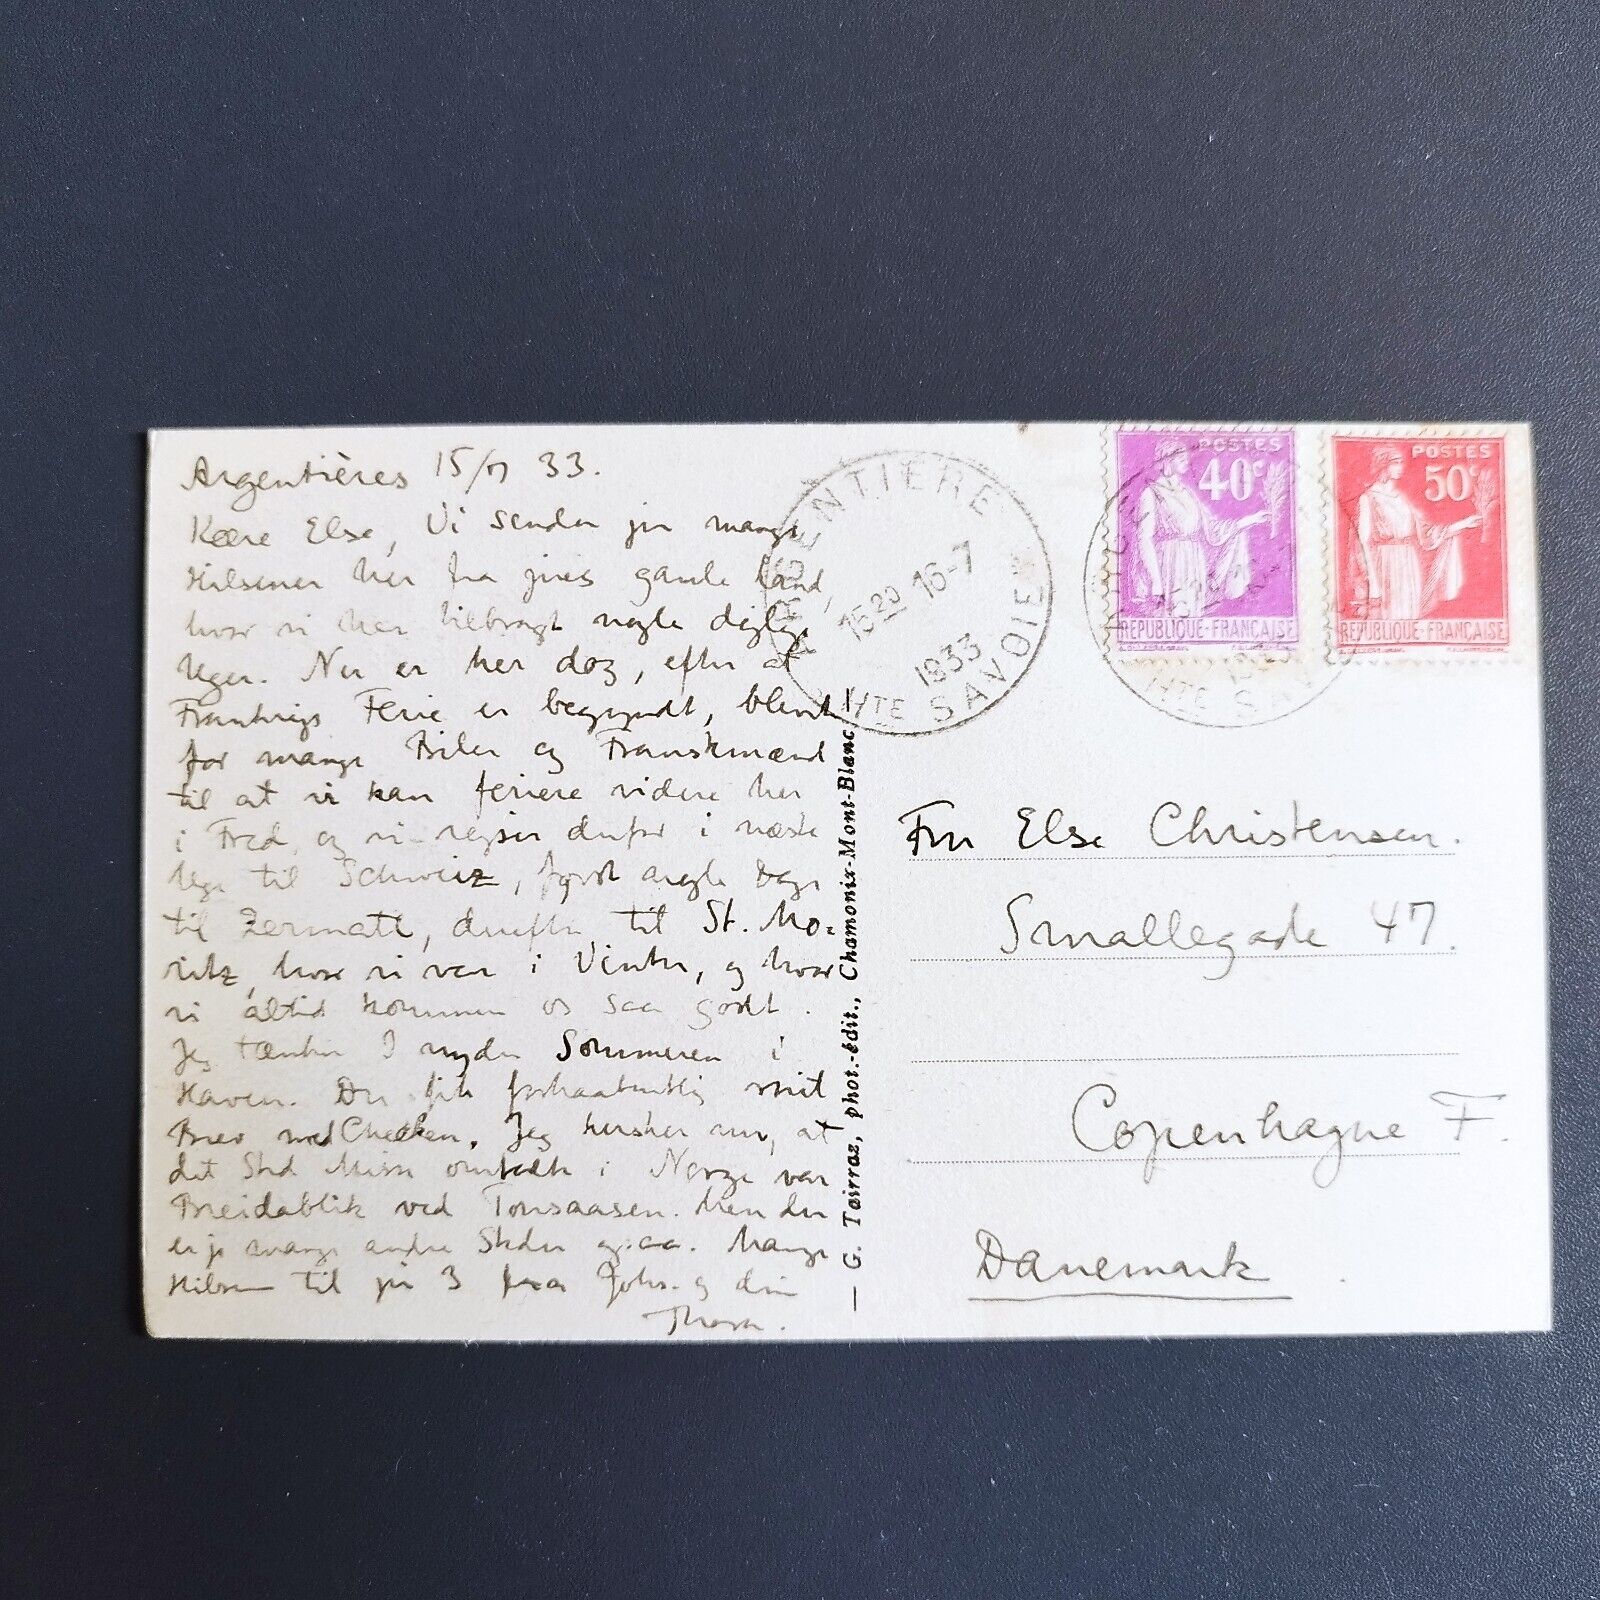 Argentières 15/7 33.
Kære Else, Vi sender jer mange
Hilsener her fra jeres gamle Land,
hvor vi har tilbragt nogle dejlige
Uger. Nu er her dog, efter at
Frankrigs Ferie er begyndt, blevet
for mange Biler og Franskmænd
til at vi kan feriere videre her
i Fred, og vi rejser derfor i næste
Uge til Schweiz, først nogle Dage
til Zermatt, derefter til St. Mo-
ritz, hvor vi var i Vinter, og hvor
vi altid kommer os saa godt.
Jeg tænker I nyder Sommeren i
Haven. Du fik forhaabentlig mit
Brev med Checken. Jeg husker nu, at
det Sted Misse omtalte i Norge var
Breidablik ved Tonsaasen. Men der
er jo mange andre Steder ogsaa. Mange
Hilsner til jer 3 fra Johs. og din
Thora.
ARGENTIERE
15 20 16-7
1933
HTE SAVOIE
POSTES
40c
REPUBLIQUE-FRANCAISE
POSTES
50c
REPUBLIQUE-FRANCAISE
HTE SAV
— G. Tairraz, phot.-édit., Chamonix-Mont-Blanc
Fru Else Christensen.
Smallegade 47.
Copenhague F.
Danemark